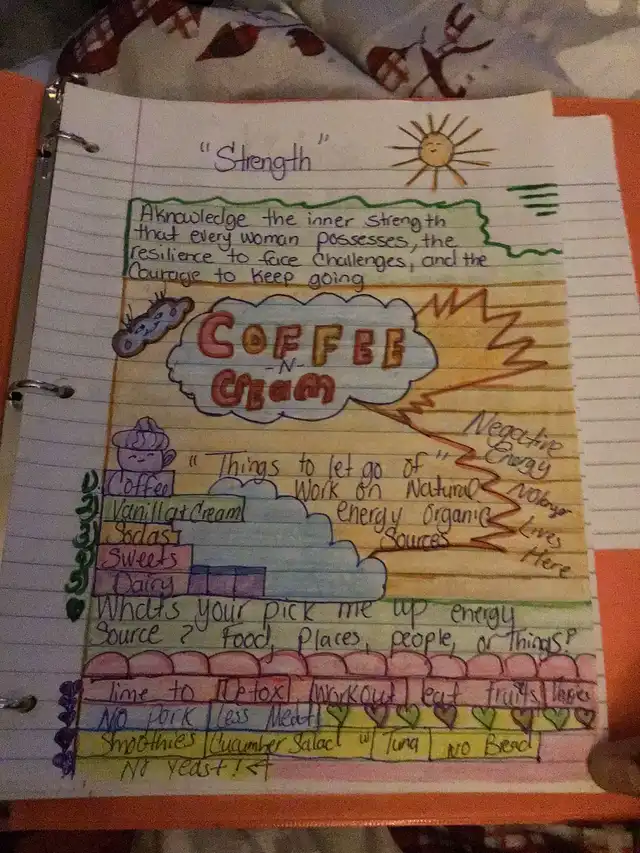 "Strength"
Aknowledge the inner strength
that every woman possesses, the
resilience to face challenges, and the
Courage to keep going
COFFEE
-N-
CREam
Negative
Energy
No longer
Lives
Here
"Things to let go of"
Work on Natural
energy organic
Sources
Coffee
Vanilla Cream
Sodas
Sweets
Dairy
Whats your pick me up energy
Source? Food, places, people, or things?
Time to Detox, Workout, eat fruits
NO Pork Less Meat
Smoothies Cucumber Salad w/ Tuna NO Bread
No yeast!